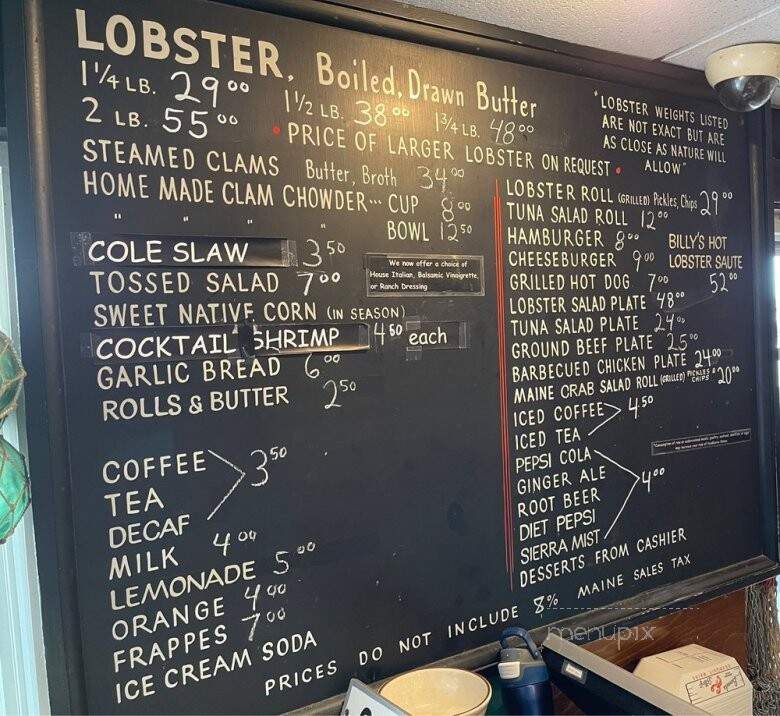 LOBSTER, Boiled, Drawn Butter
1 1/4 LB. 29 00 1 1/2 LB. 38 00 1 3/4 LB. 48 00
2 LB. 55 00 • PRICE OF LARGER LOBSTER ON REQUEST •
"LOBSTER WEIGHTS LISTED
ARE NOT EXACT BUT ARE
AS CLOSE AS NATURE WILL
ALLOW"
STEAMED CLAMS Butter, Broth 34 00
HOME MADE CLAM CHOWDER... CUP 8 00
" " " " BOWL 12 50
COLE SLAW 3 50
We now offer a choice of
House Italian, Balsamic Vinaigrette,
or Ranch Dressing
TOSSED SALAD 7 00
SWEET NATIVE CORN (IN SEASON)
COCKTAIL SHRIMP 4 50 each
GARLIC BREAD 6 00
ROLLS & BUTTER 2 50
COFFEE
TEA
DECAF
3 50
MILK 4 00
LEMONADE 5 00
ORANGE 4 00
FRAPPES 7 00
ICE CREAM SODA
LOBSTER ROLL (GRILLED) Pickles, Chips 29 00
TUNA SALAD ROLL 12 00
HAMBURGER 8 00
CHEESEBURGER 9 00
GRILLED HOT DOG 7 00
BILLY'S HOT
LOBSTER SAUTE
52 00
LOBSTER SALAD PLATE 48 00
TUNA SALAD PLATE 24 00
GROUND BEEF PLATE 25 00
BARBECUED CHICKEN PLATE 24 00
MAINE CRAB SALAD ROLL (GRILLED) PICKLES & CHIPS 20 00
ICED COFFEE
ICED TEA
4.50
PEPSI COLA
GINGER ALE
ROOT BEER
DIET PEPSI
SIERRA MIST
4 00
DESSERTS FROM CASHIER
PRICES DO NOT INCLUDE 8% MAINE SALES TAX
menupix